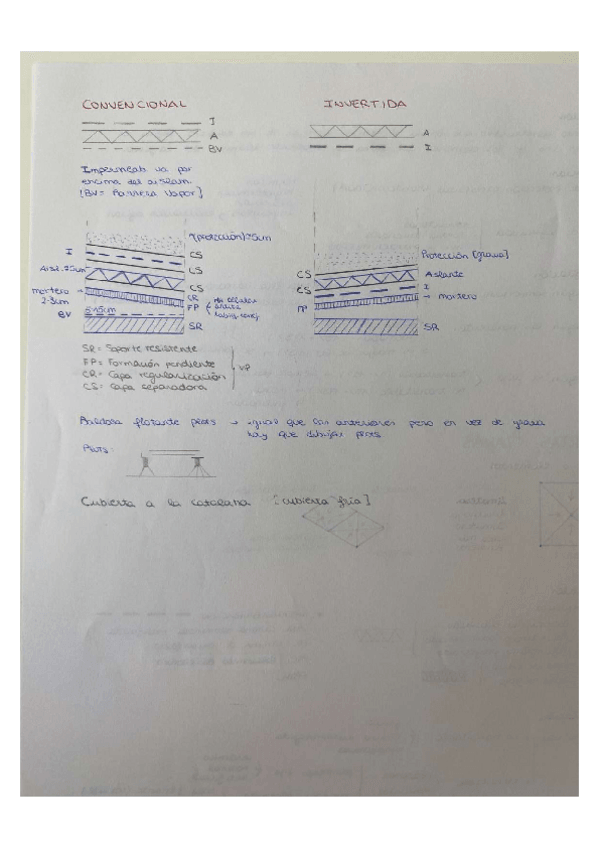 CONVENCIONAL
I
A
BV
Impermeab va por
encima del aislam.
(BV= Barrera Vapor)
INVERTIDA
A
I
(protección)>5cm
I
CS
Aisl. >5cm
CS
CS
mortero
2-3cm
CR
FP
BV
5-15cm
SR
Protección (grava)
CS
Aislante
CS
I
mortero
FP
SR
SR= Soporte resistente
FP= Formación pendiente
CR= Capa regularización
CS= Capa separadora
Baldosa flotante plots → igual que las anteriores pero en vez de grava
hay que dibujar plots
Plots:
Cubierta a la catalana [cubierta fría]